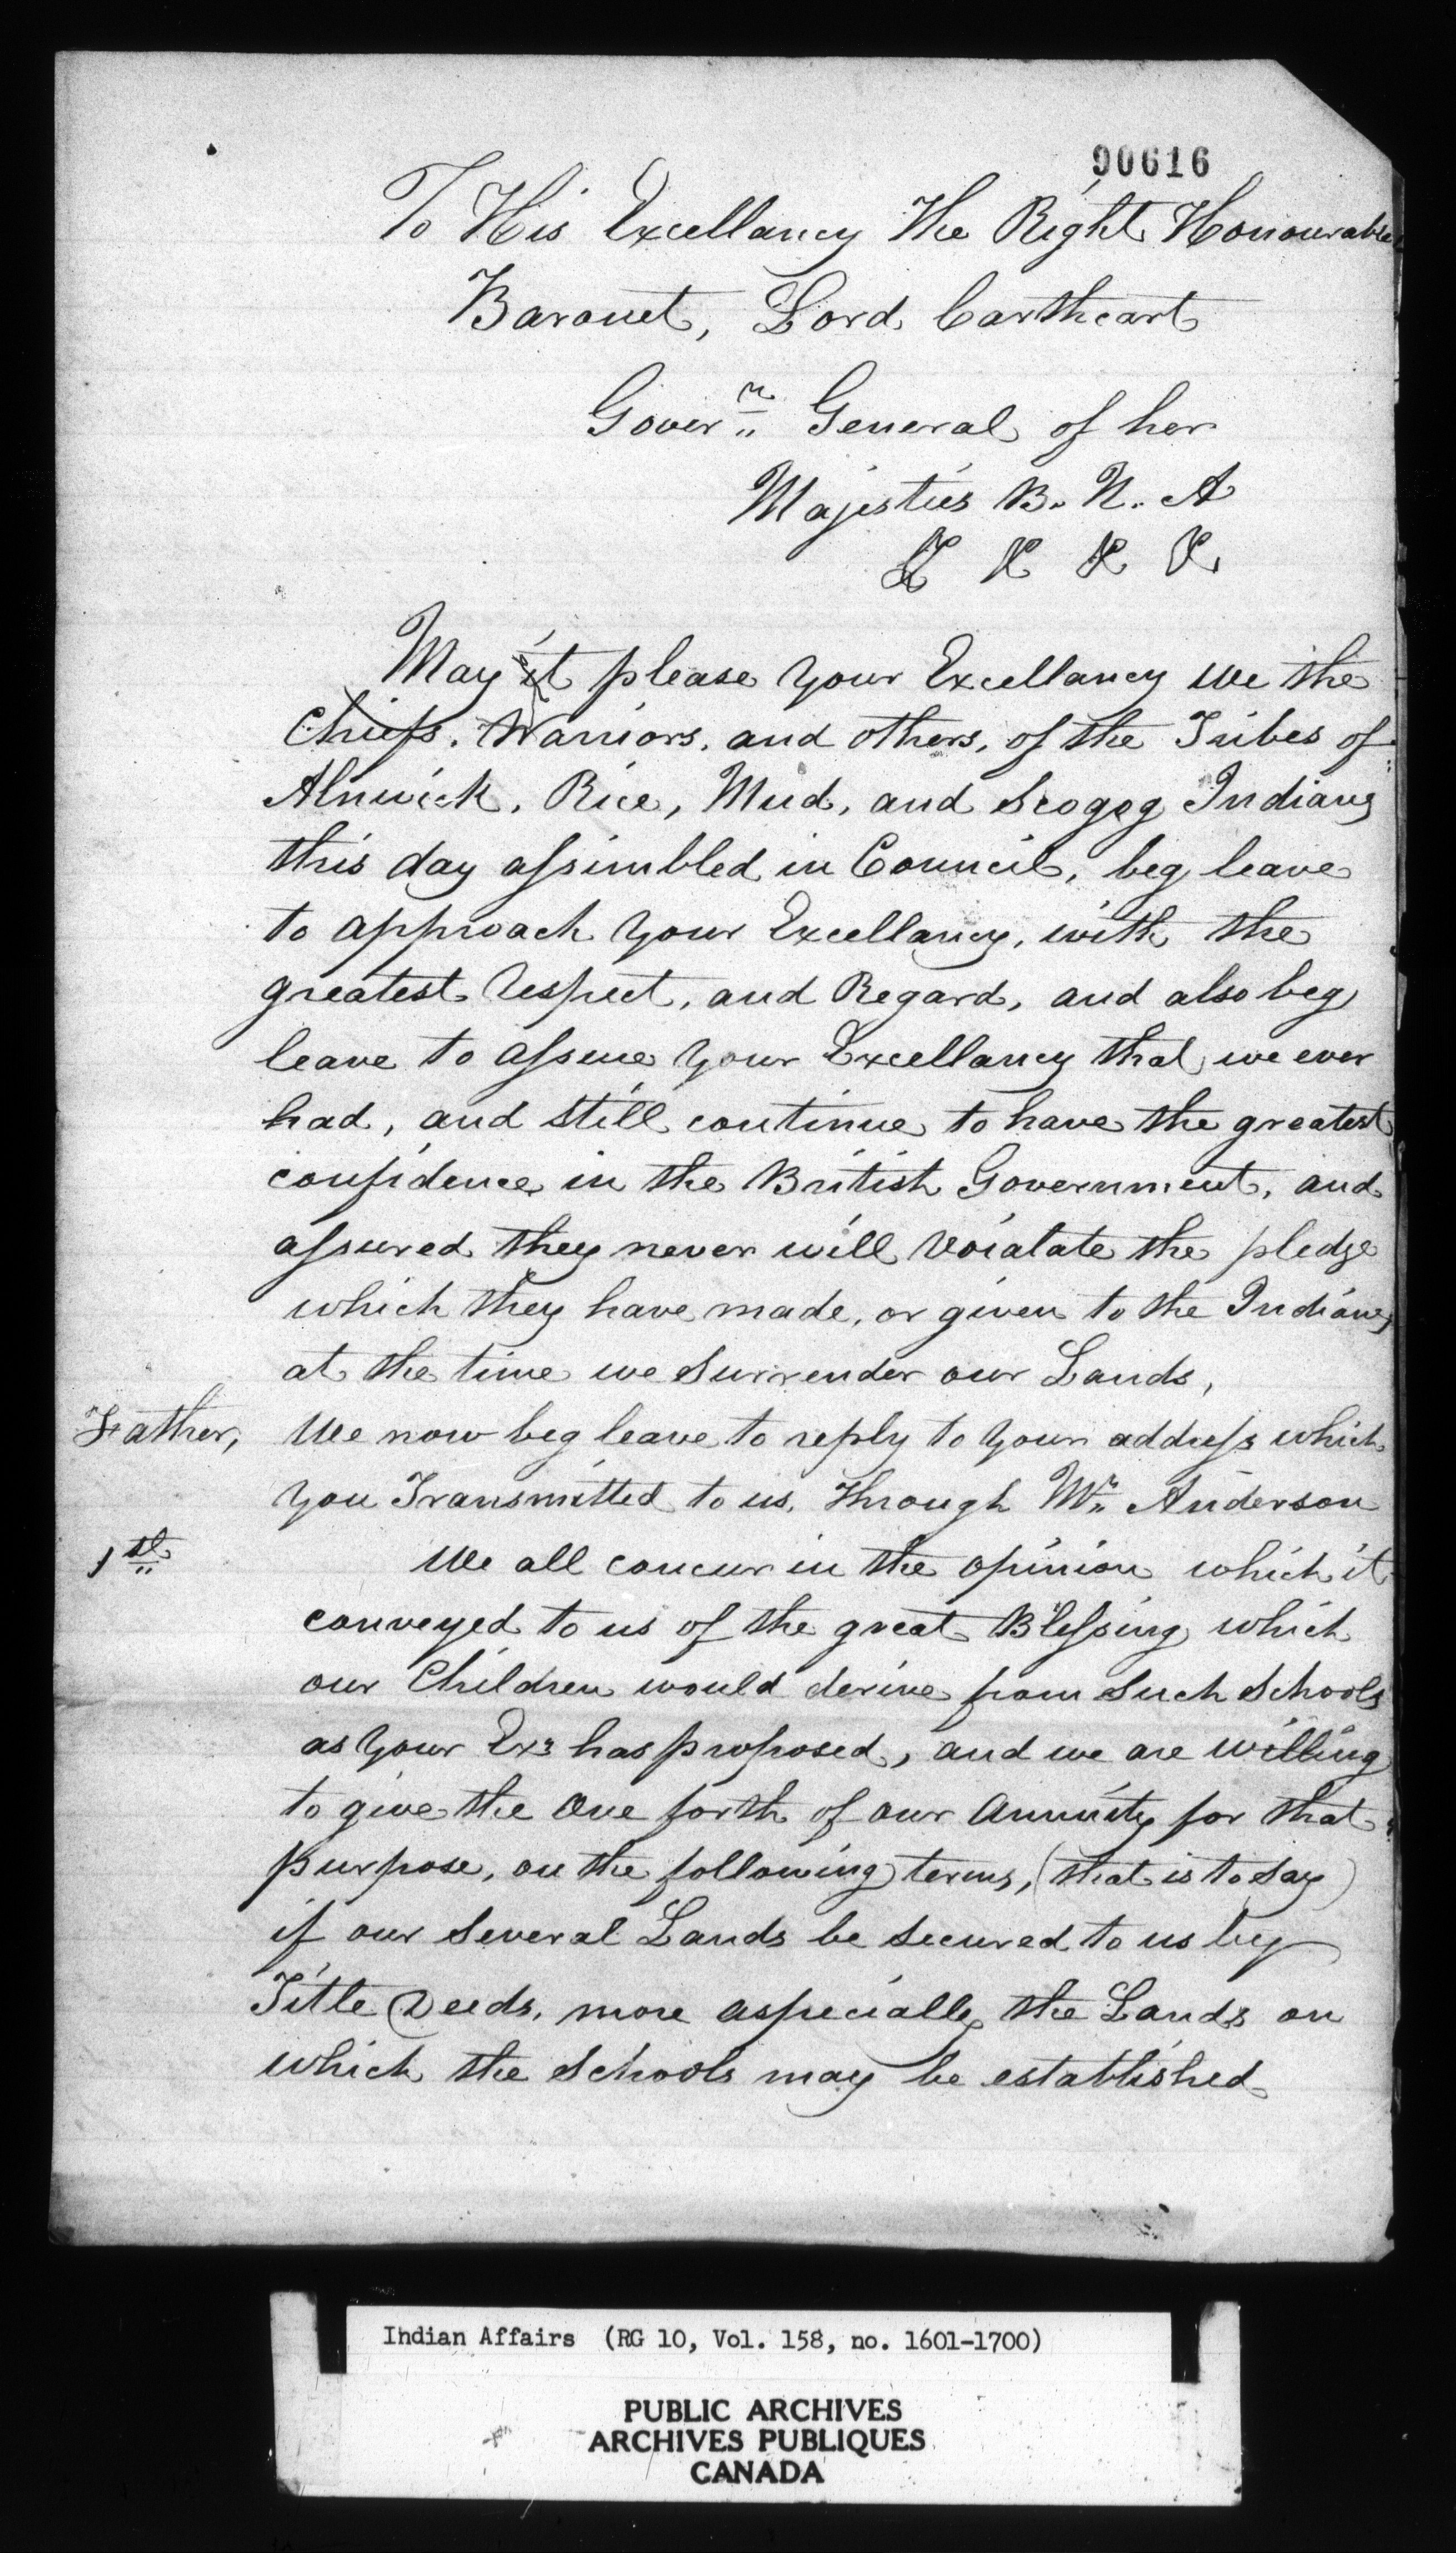 90616
To His Excellancy The Right Honourable
Baronet, Lord Carthcart
Goverr General of her
Majesties B. N. A
&c &c &c &c
May it please your Excellancy We the
Chiefs. Warriors, and others, of the Tribes of
Alnwick, Rice, Mud, and Scogog Indians
this day assimbled in Council, beg leave
to approach your Excellancy, with the
greatest Respect, and Regard, and also beg
leave to assure your Excellancy that we ever
had, and still continue to have the greatest
confidence in the British Government, and
assured they never will voialate the pledge
which they have made, or given to the Indians
at the time we Surrender our Lands,
Father, We now beg leave to reply to your address which
you Transmitted to us, through Mr Anderson
1st We all concur in the opinion which it
conveyed to us of the great Blessing which
our Children would derive from such Schools
as your Exy has proposed, and we are willing
to give the One forth of our Annuity for that
purpose, on the following terms, (that is to say)
if our several Lands be secured to us by
Title Deeds, more aspecially the Lands on
which the Schools may be established
Indian Affairs (RG 10, Vol. 158, no. 1601-1700)
PUBLIC ARCHIVES
ARCHIVES PUBLIQUES
CANADA